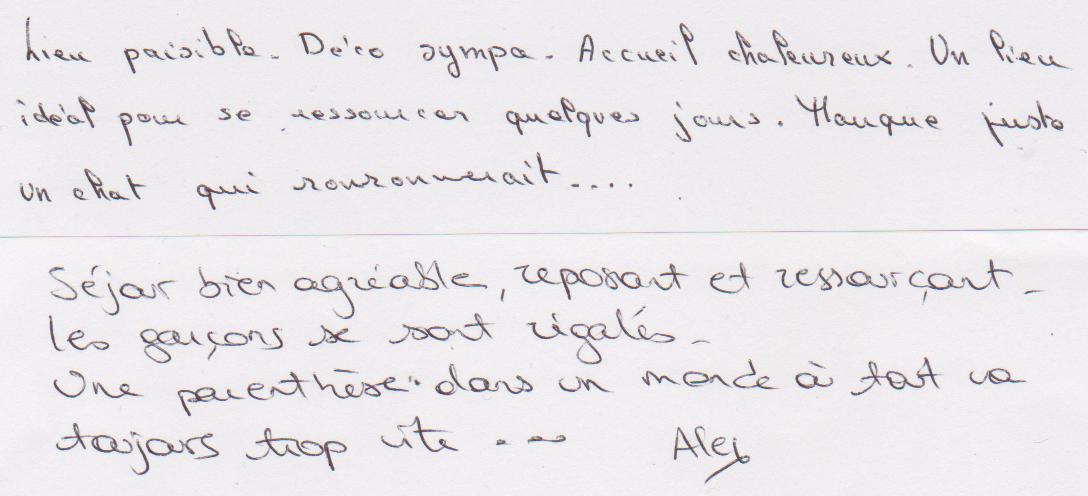 Lieu paisible. Déco sympa. Accueil chaleureux. Un lieu
idéal pour se ressourcer quelques jours. Manque juste
un chat qui ronronnerait....
Séjour bien agréable, reposant et ressourçant.
Les garçons se sont régalés.
Une parenthèse dans un monde où tout va
toujours trop vite ...
Alex